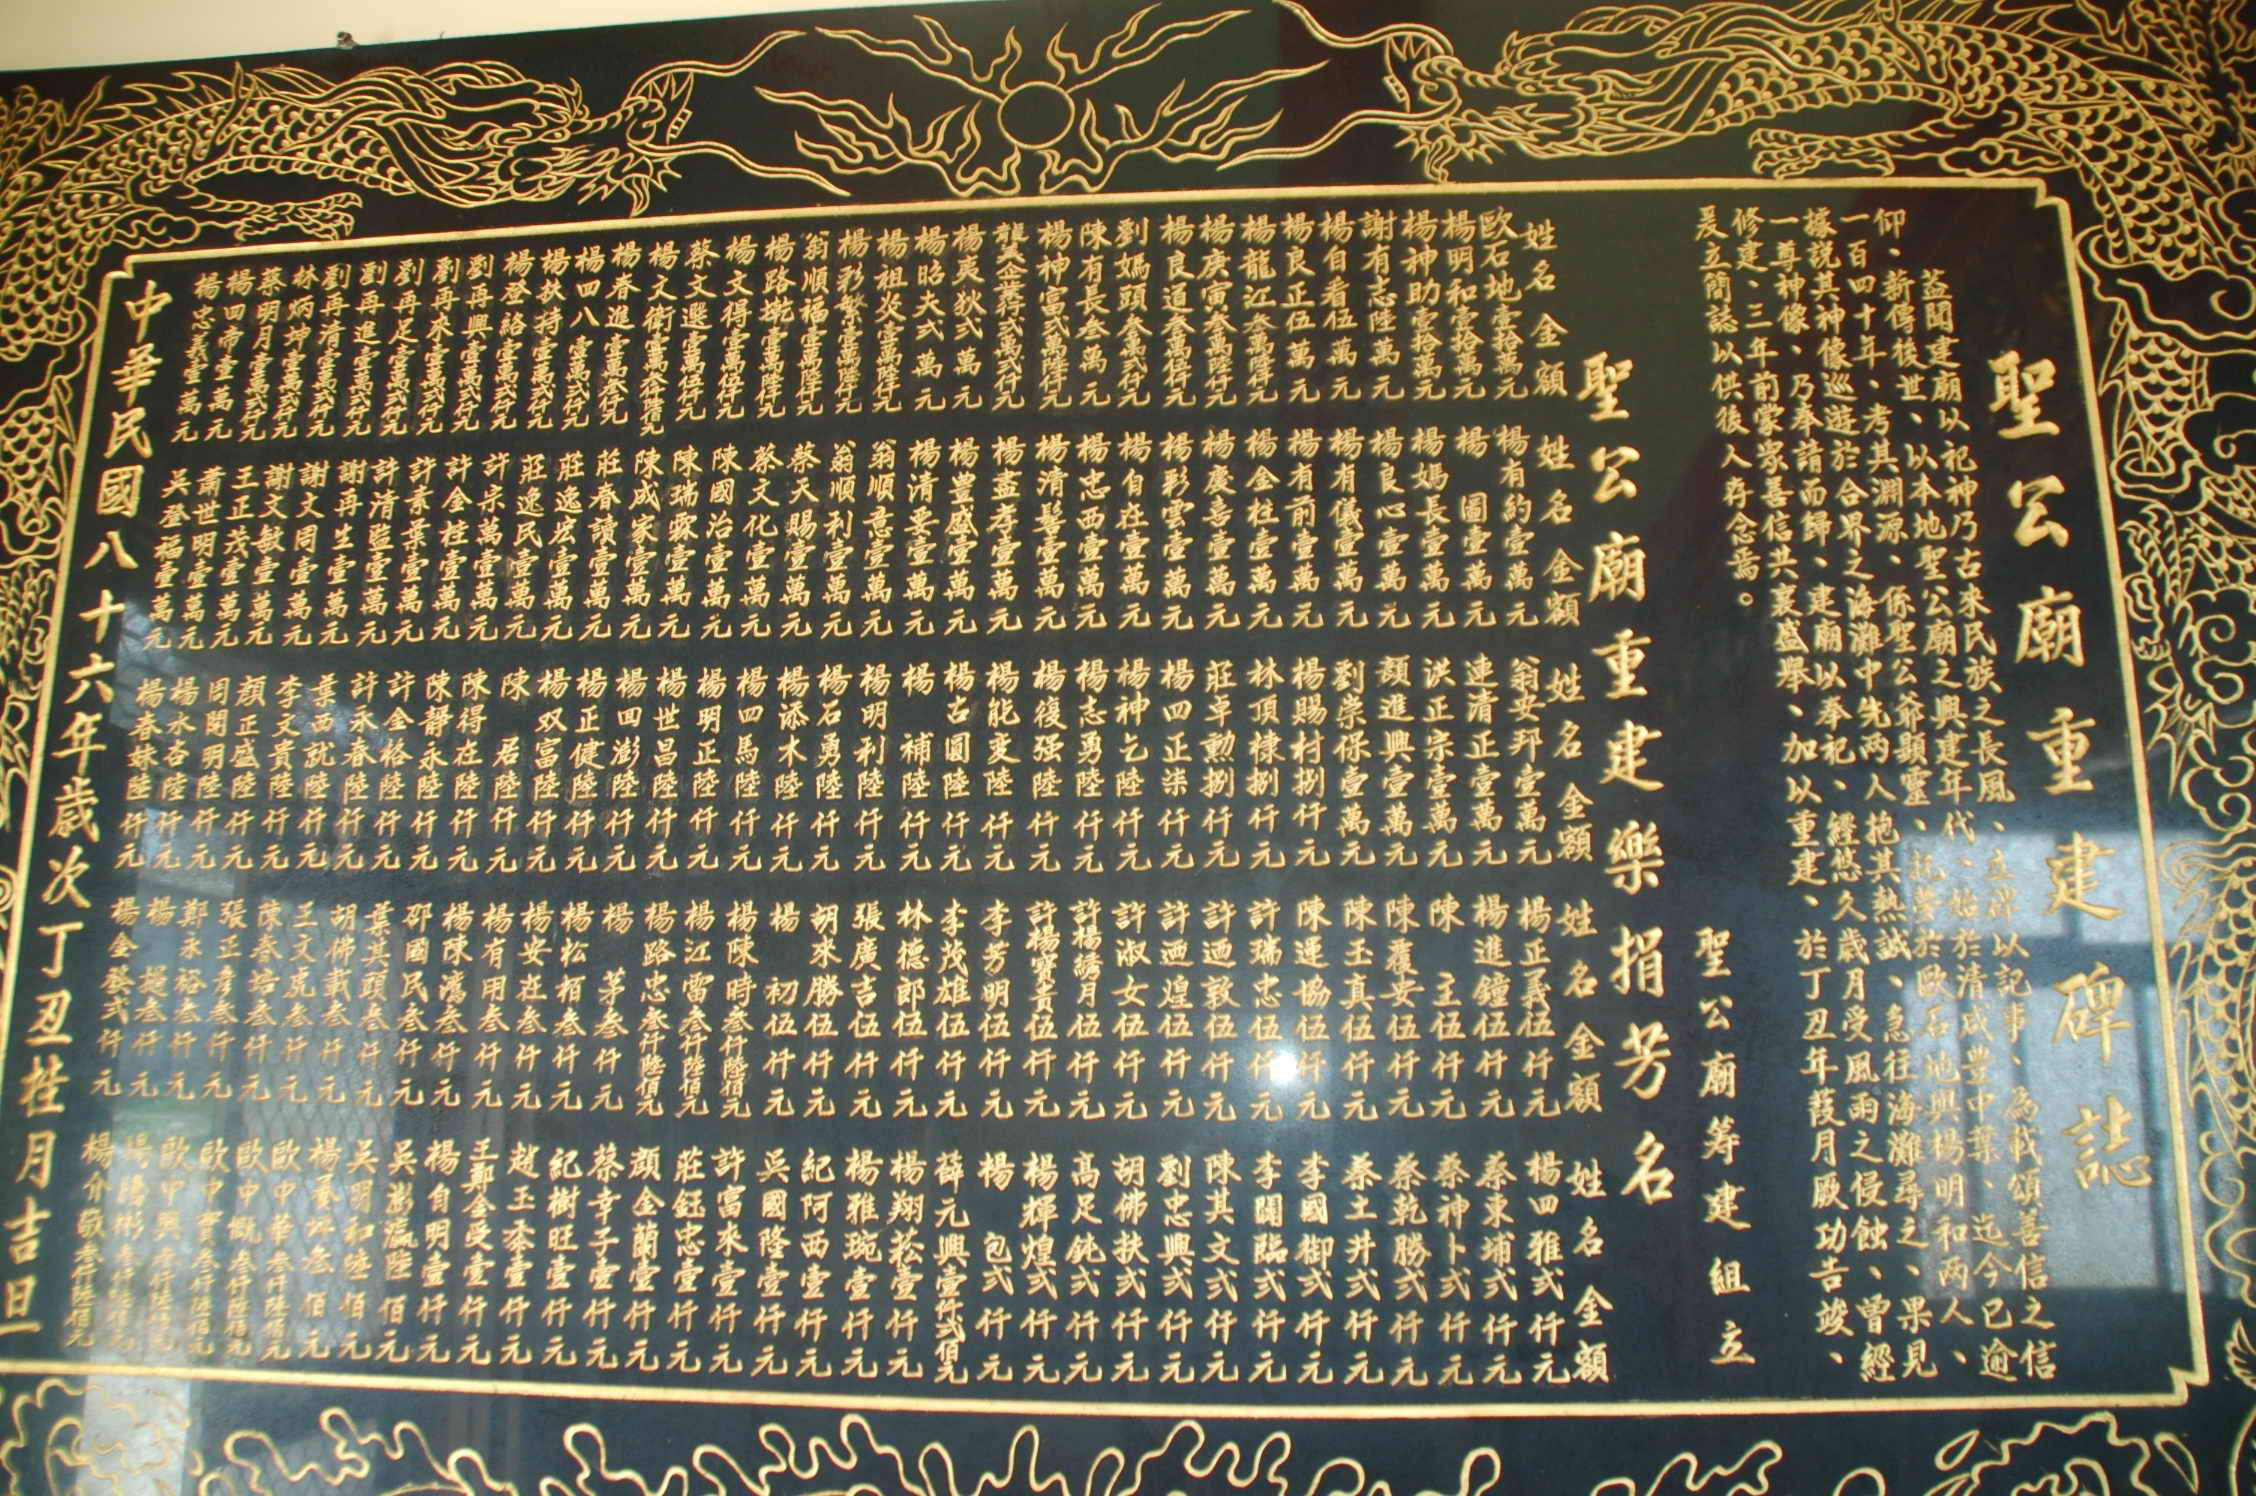 聖公廟重建碑誌
蓋聞建廟以祀神乃古來民族之長風、立碑以記事、為載頌善信之信
仰、薪傳後世、以本地聖公廟之興建年代、始於清咸豐中葉、迄今已逾
一百四十年、考其淵源、係聖公爺顯靈、託夢於歐石地與楊明和兩人、
據說其神像巡遊於合界之海灘中先兩人抱其熱誠、急往海灘尋之、果見
一尊神像、乃奉請而歸、建廟以奉祀、經悠久歲月受風雨之侵蝕、曾經
修建、三年前蒙眾善信共襄盛舉、加以重建、於丁丑年葭月厥功告竣、
爰立簡誌以供後人存念焉。
聖公廟籌建組立
聖公廟重建樂捐芳名
姓名金額
歐石地壹拾萬元
楊明和壹拾萬元
楊神助壹拾萬元
謝有志陸萬元
楊自看伍萬元
楊良正伍萬元
楊龍江叁萬陸仟元
楊庚寅叁萬陸仟元
楊良道叁萬伍仟元
劉媽頭叁萬弍仟元
陳有長叁萬元
楊神富弍萬陸仟元
楊夷狄弍萬元
楊昭夫弍萬元
楊祖炎壹萬陸仟元
楊彩繁壹萬陸仟元
翁順福壹萬陸仟元
楊路乾壹萬陸仟元
楊文得壹萬伍仟元
蔡文選壹萬伍仟元
楊文衛
楊春進壹萬叁仟元
楊四八壹萬弍仟元
楊扶持壹萬弍仟元
楊登絡壹萬弍仟元
劉再興壹萬弍仟元
劉再來壹萬弍仟元
劉再足壹萬弍仟元
劉再進壹萬弍仟元
劉再清壹萬弍仟元
林炳坤壹萬弍仟元
蔡明月壹萬弍仟元
楊四帝壹萬元
楊忠義壹萬元
姓名金額
楊有約壹萬元
楊圖壹萬元
楊媽長壹萬元
楊良心壹萬元
楊有儀壹萬元
楊有前壹萬元
楊金柱壹萬元
楊慶喜壹萬元
楊彩雲壹萬元
楊自在壹萬元
楊忠西壹萬元
楊清髻壹萬元
楊盡孝壹萬元
楊豊盛壹萬元
楊清要壹萬元
翁順意壹萬元
翁順利壹萬元
蔡天賜壹萬元
蔡文化壹萬元
陳國治壹萬元
陳瑞霖壹萬元
陳成家壹萬元
莊春讀壹萬元
莊逸宏壹萬元
莊逸民壹萬元
許宗萬壹萬元
許金柱壹萬元
許素葉壹萬元
許清監壹萬元
謝再生壹萬元
謝文同壹萬元
謝文敏壹萬元
王正茂壹萬元
蕭世明壹萬元
吳登福壹萬元
姓名金額
翁安邦壹萬元
連清正壹萬元
洪正宗壹萬元
顏進興壹萬元
劉崇保壹萬元
楊賜村捌仟元
林頂棣捌仟元
莊卓勳捌仟元
楊四正柒仟元
楊神乞陸仟元
楊志勇陸仟元
楊復强陸仟元
楊能变陸仟元
楊古圓陸仟元
楊補陸仟元
楊明利陸仟元
楊石勇陸仟元
楊添木陸仟元
楊四馬陸仟元
楊明正陸仟元
楊世昌陸仟元
楊四澎陸仟元
楊正健陸仟元
楊奴富陸仟元
陳君陸仟元
陳得在陸仟元
陳靜永陸仟元
許金裕陸仟元
許永春陸仟元
葉西就陸仟元
李文貴陸仟元
顏正盛陸仟元
周開明陸仟元
楊水杏陸仟元
楊春妹陸仟元
姓名金額
楊正義伍仟元
楊進鐘伍仟元
陳主伍仟元
陳羅安伍仟元
陳玉真伍仟元
陳運協伍仟元
許瑞忠伍仟元
許迺敦伍仟元
許迺煌伍仟元
許淑女伍仟元
許楊綉月伍仟元
許楊寶貴伍仟元
李芳明伍仟元
李茂雄伍仟元
林德郎伍仟元
張廣吉伍仟元
胡來勝伍仟元
楊初伍仟元
楊陳時叁仟陸佰元
楊江雷叁仟陸佰元
楊路忠叁仟陸佰元
楊茅叁仟元
楊松栢叁仟元
楊安莊叁仟元
楊有用叁仟元
楊陳濱叁仟元
邵國民叁仟元
葉其頭叁仟元
胡佛載叁仟元
王文虎叁仟元
陳春培叁仟元
張正彥叁仟元
鄭永裕叁仟元
楊提叁仟元
楊金發弍仟元
姓名金額
楊四雅弍仟元
蔡東埔弍仟元
蔡神卜弍仟元
蔡乾勝弍仟元
蔡土井弍仟元
李國御弍仟元
李開臨弍仟元
陳其文弍仟元
劉忠興弍仟元
胡佛扶弍仟元
高足鈍弍仟元
楊輝煌弍仟元
楊包弍仟元
薛元興壹仟弍佰元
楊翔菘壹仟元
楊雅琬壹仟元
紀阿西壹仟元
吳國隆壹仟元
許富來壹仟元
莊鈺忠壹仟元
顏金蘭壹仟元
蔡幸子壹仟元
紀樹旺壹仟元
趙玉奎壹仟元
王鄭金受壹仟元
楊自明壹仟元
吳澎瀛陸佰元
吳明和陸佰元
楊叁佰元
歐中華叁仟陸佰元
歐中慨叁仟陸佰元
歐中實叁仟陸佰元
歐中興叁仟陸佰元
楊介敬叁仟陸佰元
中華民國八十六年歲次丁丑桂月吉旦